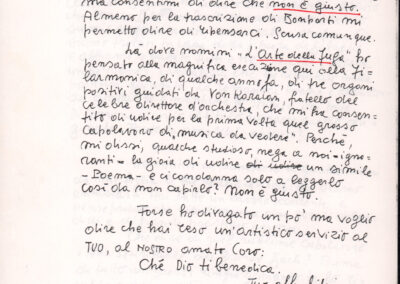 ma consentimi di dire che non è giusto.
Almeno per la trascrizione di Bomporti mi
permetto dire di ripensarci. Scusa comunque.
Là dove nomini "L'Arte della Fuga" ho
pensato alla magnifica esecuzione qui alla Fi-
larmonica, di qualche anno fa, di tre organi
positivi guidati da Von Karaian, fratello del
celebre direttore d'orchestra, che mi ha consen-
tito di udire per la prima volta quel grosso
capolavoro di "musica da vedere". Perché,
mi dissi, qualche studioso, nega a noi - igno-
ranti - la gioia di udire di udire un simile
- Poema - e ci condanna solo a leggerlo
così da non capirlo? Non è giusto.
Forse ho divagato un po' ma voglio
dire che hai reso un'artistico servizio al
TUO, al NOSTRO amato Coro:
Ché Dio ti benedica.